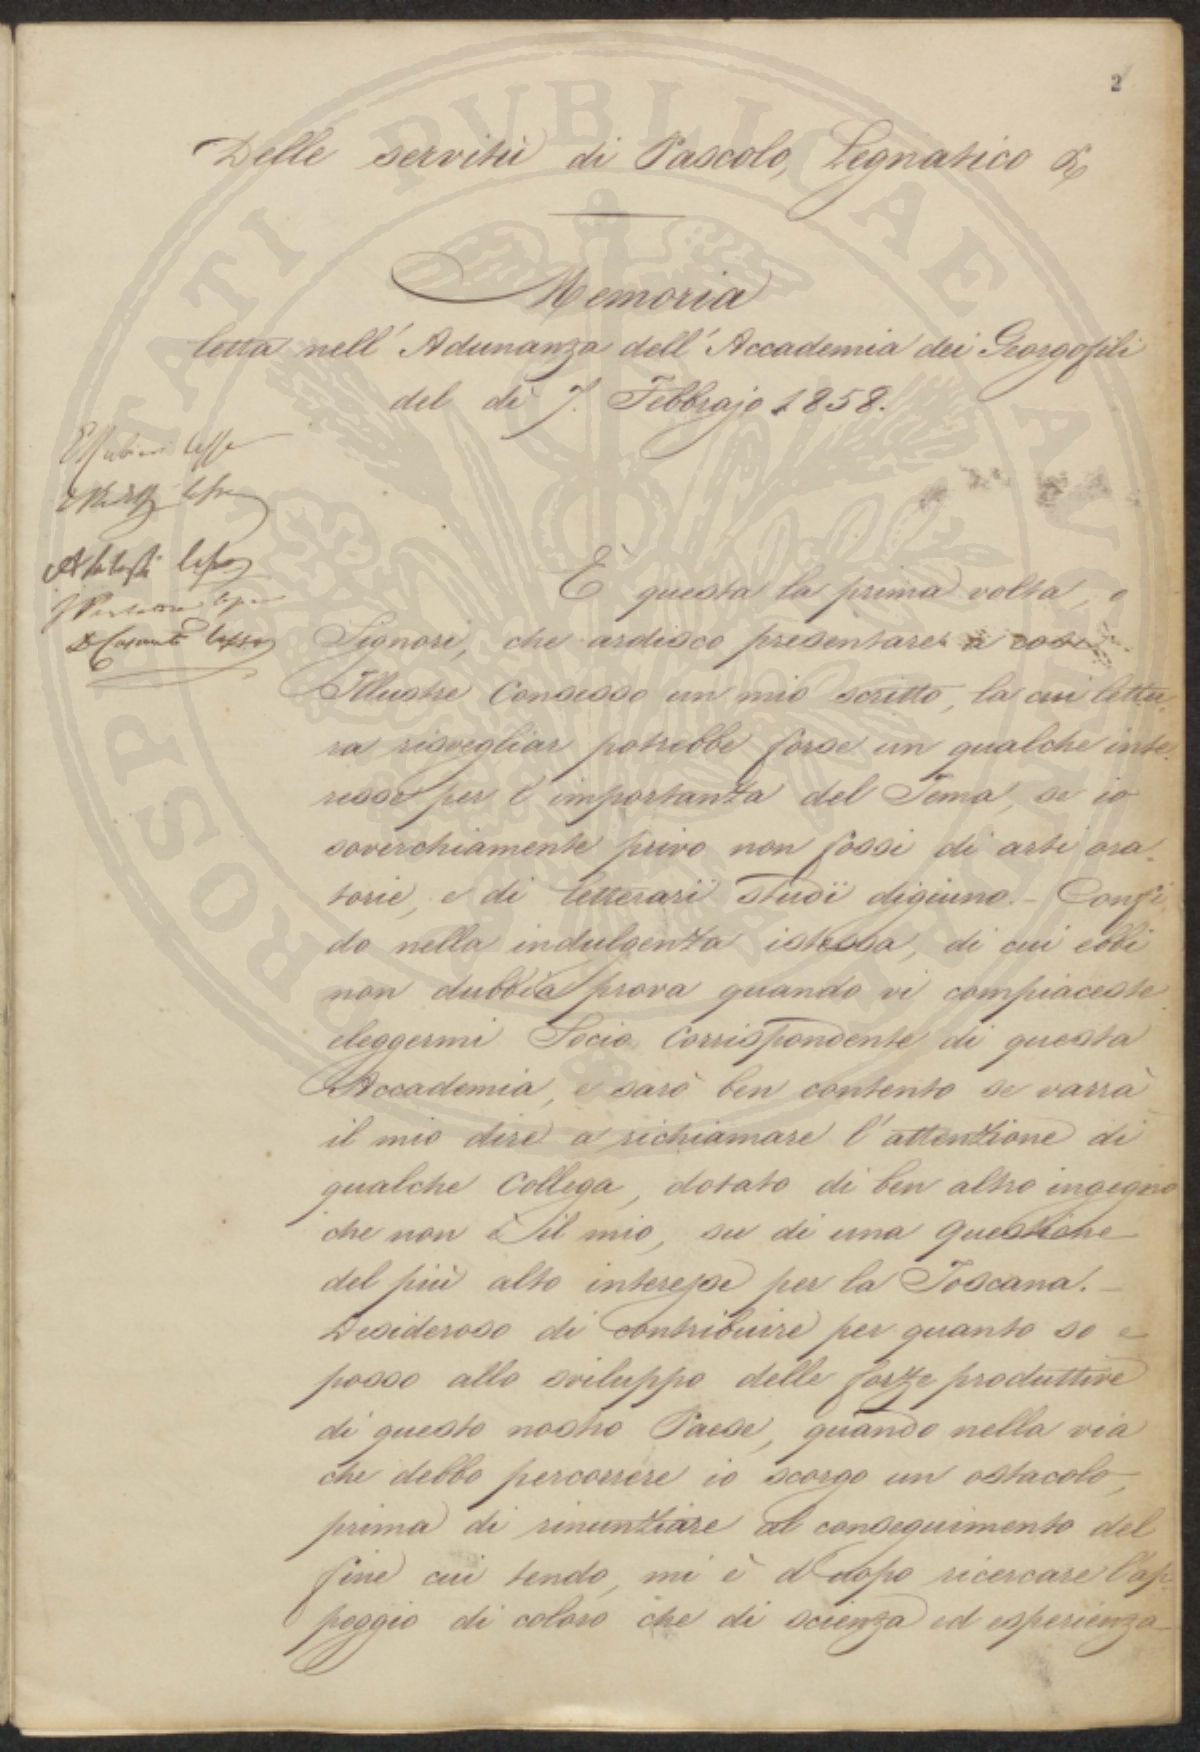 2
Delle servitù di Pascolo, Legnatico &
Memoria
letta nell'Adunanza dell'Accademia dei Georgofili
del dì 7. Febbrajo 1858.
È questa la prima volta, o
Signori, che ardisco presentare a
Illustre Consesso un mio scritto, la cui lettu-
ra risvegliar potrebbe forse un qualche inte-
resse per l'importanza del Tema, se io
soverchiamente privo non fossi di arti ora-
torie, e di letterarii studii digiuno. - Confi-
do nella indulgenza istessa, di cui ebbi
non dubbia prova quando vi compiaceste
eleggermi Socio Corrispondente di questa
Accademia, e sarò ben contento se varrà
il mio dire a richiamare l'attenzione di
qualche Collega, dotato di ben altro ingegno
che non è il mio, su di una Questione
del più alto interesse per la Toscana. -
Desideroso di contribuire per quanto so e
posso allo sviluppo delle forze produttive
di questo nostro Paese, quando nella via
che debbo percorrere io scorgo un ostacolo,
prima di rinunziare al conseguimento del
fine cui tendo, mi è d'uopo ricercare l'ap-
poggio di coloro che di scienza ed esperienza
PROSPERITATI PVBLICAE AVGENDAE